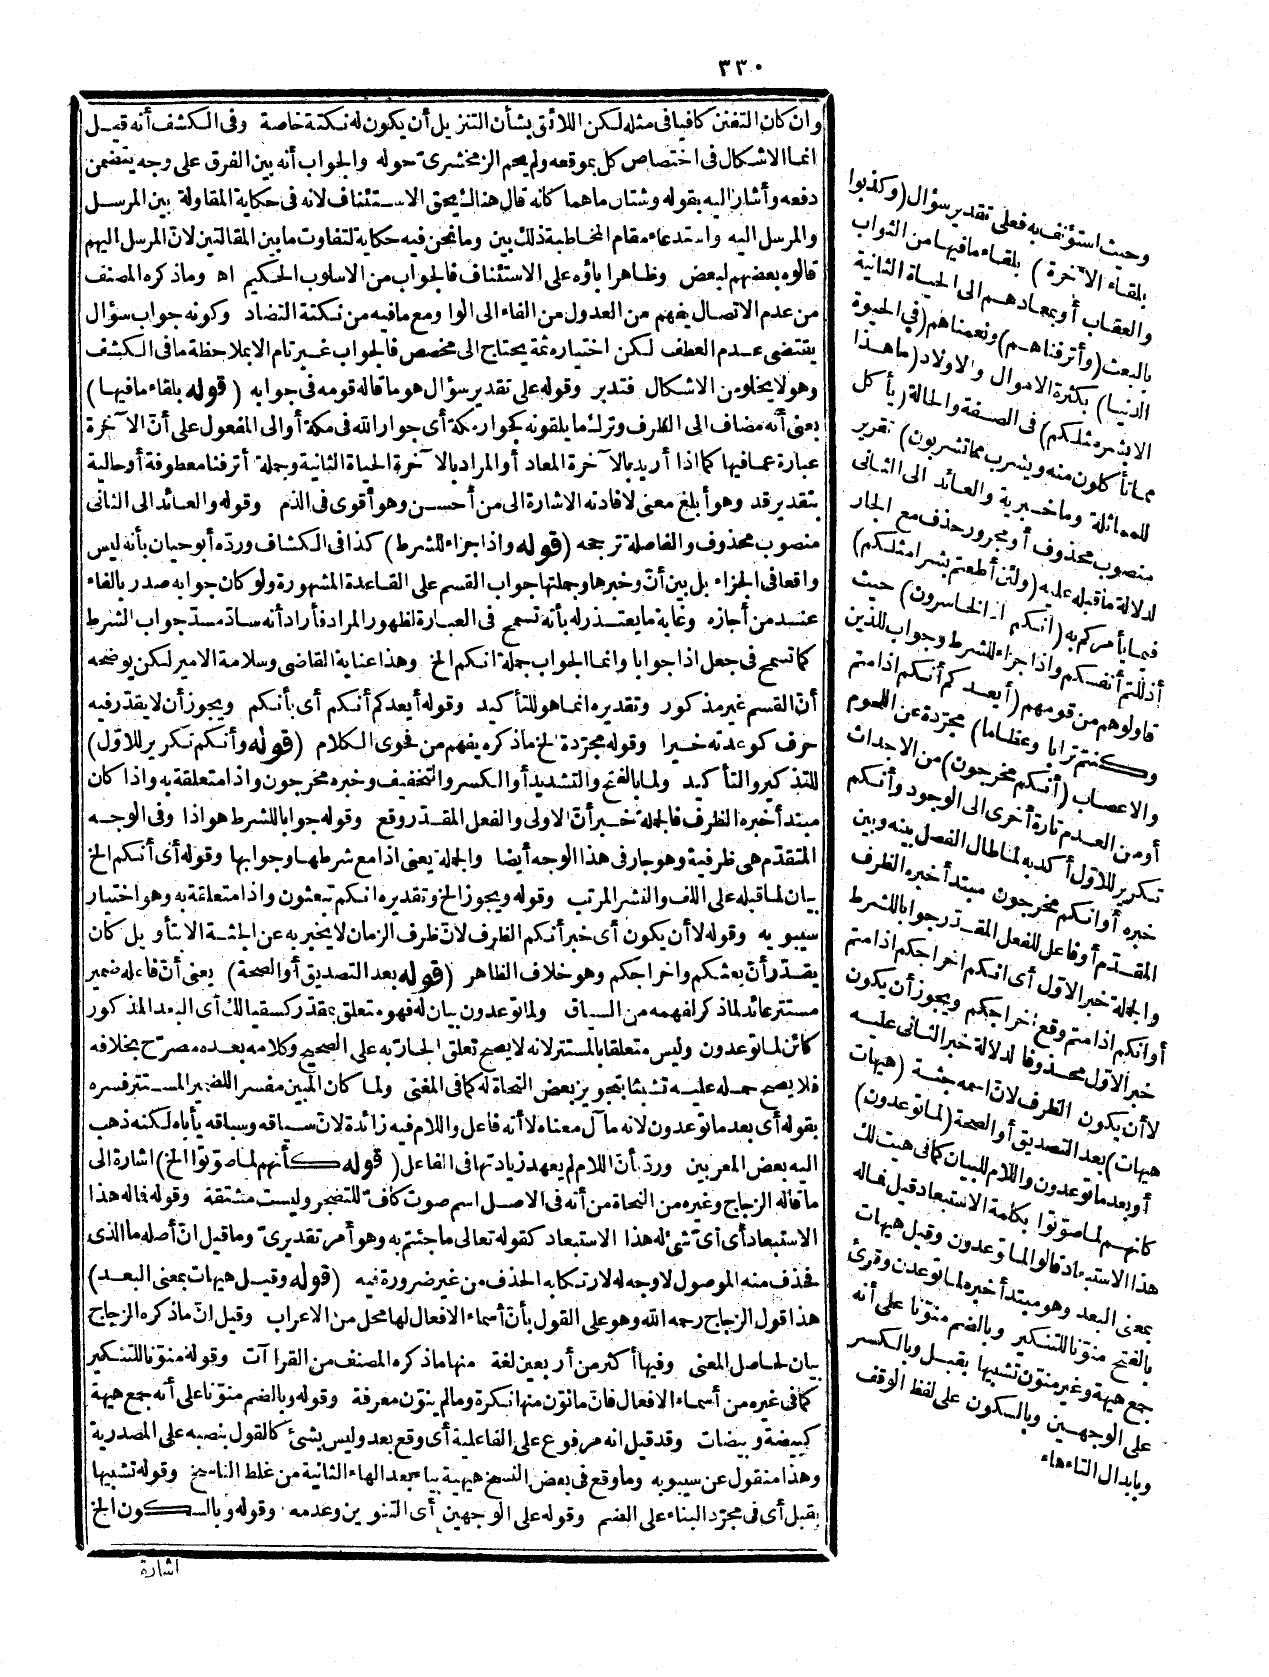 ٣٣٠
وان كان التفنن كافيا فى مثله لكن اللائق بشأن التنزيل أن يكون له نكتة خاصة وفى الكشف أنه قيل
انما الاشكال فى اختصاص كل بموقعه ولم يحم الزمخشرى حوله والجواب أنه بين الفرق على وجه يتضمن
دفعه وأشار اليه بقوله وشتان ماهما كانه قال هنالك يحق الاستئناف لانه فى حكاية المقاولة بين المرسل
والمرسل اليه واستدعاء مقام المخاطبة ذلك بين وما نحن فيه حكاية لتفاوت ما بين المقالتين لان المرسل اليهم
قالوه بعضهم لبعض وظاهرا باؤه على الاستئناف فالجواب من الاسلوب الحكيم اه وماذكره المصنف
من عدم الاتصال يفهم من العدول من الفاء الى الواو مع مافيه من نكتة التضاد وكونه جواب سؤال
يقتضى عدم العطف لكن اختياره ثمة يحتاج الى مخصص فالجواب غير تام الا بملاحظة مافى الكشف
وهو لا يخلو من الاشكال فتدبر وقوله على تقدير سؤال هو ما قاله قومه فى جوابه (قوله بلقاء مافيها)
يعنى أنه مضاف الى الظرف وترك ما يلقونه كجوار مكة أى جوار الله فى مكة أوالى المفعول على أنّ الآخرة
عبارة عما فيها كما اذا أريد بالآخرة المعاد أو المراد بالآخرة الحياة الثانية وجملة أترفنا معطوفة أو حالية
بتقدير قد وهو أبلغ معنى لافادته الاشارة الى من أحسن وهو أقوى فى الذم وقوله والعائد الى الثانى
منصوب محذوف والفاصلة ترجحه (قوله واذا جزاء للشرط) كذا فى الكشاف وردّه أبو حيان بأنه ليس
واقعا فى الجزاء بل بين أنّ وخبرها وجملتها جواب القسم على القاعدة المشهورة ولو كان جوابه صدر بالفاء
عند من أجازه وغاية ما يعتذر له بأنه تسمح فى العبارة لظهور المراد فأراد أنه سادّ مسدّ جواب الشرط
كما تسمح فى جعل اذا جوابا وانما الجواب جملة انكم الخ وهذا عناية القاضى وسلامة الامير لكن يوضحه
أنّ القسم غير مذكور وتقديره انما هو للتأكيد وقوله أيعدكم أنكم أى بأنكم ويجوز أن لا يقدّر فيه
حرف كوعدته خيرا وقوله مجرّدة الخ ماذكره يفهم من فحوى الكلام (قوله وأنكم تكرير للاوّل)
للتذكير والتأكيد ولما بالفتح والتشديد أو الكسر والتخفيف وخبره مخرجون واذا متعلقة به واذا كان
مبتدأ خبره الظرف فالجملة خبر أنّ الاولى والفعل المقدّر وقع وقوله جوابا للشرط هو اذا وفى الوجه
المتقدّم هى ظرفية وهو جار فى هذا الوجه أيضا والجملة يعنى اذا مع شرطها وجوابها وقوله أى أنكم الخ
بيان لما قبله على اللف والنشر المرتب وقوله ويجوز الخ وتقديره انكم تبعثون واذا متعلقة به وهو اختيار
سيبويه وقوله لا أن يكون أى خبر أنكم الظرف لانّ ظرف الزمان لا يخبر به عن الجثة الا بتأويل كان
يقدّر أنّ بعثكم واخراجكم وهو خلاف الظاهر (قوله بعد التصديق أو الصحة) يعنى أنّ فاعله ضمير
مستتر عائد لماذكر لفهمه من السياق ولما توعدون بيان له فهو متعلق بمقدّر كسقيا لك أى البعد المذكور
كائن لما توعدون وليس متعلقا بالمستتر لانه لا يصح تعلق الجار به على الصحيح وكلامه بعده مصرّح بخلافه
فلا يصح حمله عليه تشبثا بتجويز بعض النحاة له كما فى المغنى ولما كان المبين مفسرا للضمير المستتر فسره
بقوله أى بعد ما توعدون لانه مآل معناه لا أنه فاعل واللام فيه زائدة لانّ سياقه وسباقه يأباه لكنه ذهب
اليه بعض المعربين وردّ بأنّ اللام لم يعهد زيادتها فى الفاعل (قوله كأنهم لما صوّتوا الخ) اشارة الى
ما قاله الزجاج وغيره من النحاة من أنه فى الاصل اسم صوت كأف للتضجر وليست مشتقة وقوله فما له هذا
الاستبعاد أى أىّ شئ له هذا الاستبعاد كقوله تعالى ما جئتم به وهو أمر تقديرىّ وما قيل انّ أصله ما الذى
فحذف منه الموصول لا وجه له لارتكابه الحذف من غير ضرورة فيه (قوله وقيل هيهات بمعنى البعد)
هذا قول الزجاج رحمه الله وهو على القول بأنّ أسماء الافعال لها محل من الاعراب وقيل انّ ماذكره الزجاج
بيان لحاصل المعنى وفيها أكثر من أربعين لغة منها ماذكره المصنف من القراآت وقوله منوّنا للتنكير
كما فى غيره من أسماء الافعال فانّ مانوّن منها نكرة ومالم ينوّن معرفة وقوله وبالضم منوّنا على أنه جمع هيهة
كبيضة وبيضات وقد قيل انه مرفوع على الفاعلية أى وقع بعد وليس بشئ كالقول بنصبه على المصدرية
وهذا منقول عن سيبويه وما وقع فى بعض النسخ هيهية بياء بعد الهاء الثانية من غلط الناسخ وقوله تشبيها
بقبل أى فى مجرّد البناء على الضم وقوله على الوجهين أى التنوين وعدمه وقوله وبالسكون الخ
اشارة
وحيث استؤنف به فعلى تقدير سؤال (وكذبوا
بلقاء الآخرة) بلقاء مافيها من الثواب
والعقاب أو بمعادهم الى الحياة الثانية
بالبعث (وأترفناهم) ونعمناهم (فى الحيوة
الدنيا) بكثرة الاموال والاولاد (ماهذا
الابشر مثلكم) فى الصفة والحالة (يأكل
مما تأكلون منه ويشرب مما تشربون) تقرير
للمماثلة وما خبرية والعائد الى الثانى
منصوب محذوف أو مجرور حذف مع الجار
لدلالة ما قبله عليه (ولئن أطعتم بشرا مثلكم)
فيما يأمركم به (انكم اذا لخاسرون) حيث
أذللتم أنفسكم واذا جزاء للشرط وجواب للذين
قاولوهم من قومهم (أيعدكم أنكم اذا متم
وكنتم ترابا وعظاما) مجرّدة عن اللحوم
والاعصاب (أنكم مخرجون) من الاجداث
أو من العدم تارة أخرى الى الوجود وأنكم
تكرير للاوّل أكد به لما طال الفصل بينه وبين
خبره أو انكم مخرجون مبتدأ خبره الظرف
المقدّم أو فاعل للفعل المقدّر جوابا للشرط
والجملة خبر الاوّل أى انكم اخراجكم اذا متم
أو انكم اذا متم وقع اخراجكم ويجوز أن يكون
خبر الاوّل محذوفا لدلالة خبر الثانى عليه
لا أن يكون الظرف لانّ اسمه جثة (هيهات
هيهات) بعد التصديق أو الصحة (لما توعدون)
أو بعد ما توعدون واللام للبيان كما فى هيت لك
كأنهم لما صوّتوا بكلمة الاستبعاد قيل فما له
هذا الاستبعاد قالوا لما توعدون وقيل هيهات
بمعنى البعد وهو مبتدأ خبره لما توعدون وقرئ
بالفتح منوّنا للتنكير وبالضم منوّنا على أنه
جمع هيهة وغير منوّن تشبيها بقبل وبالكسر
على الوجهين وبالسكون على لفظ الوقف
وبابدال التاء هاء